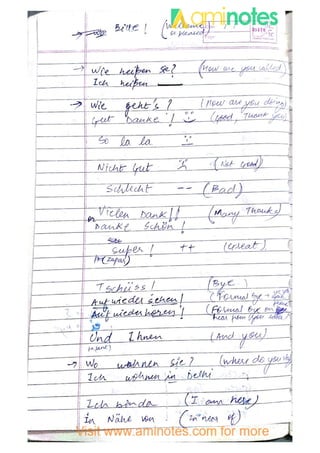 aminotes
→ Bitte! (Welcome)
→ Wie heißen Sie? (How are you called)
Ich heißen
→ Wie geht's? (How are you doing)
Gut Danke! (Good, Thank you)
So la la
Nicht Gut (Not Good)
Schlecht -- (Bad)
Vielen Dank!! (Many Thanks)
Danke Schön!
Super! ++ (Great)
(Zuper)
Tschüss! (Bye)
Auf wieder sehen! (Formal bye
Auf wieder hören! (Formal Bye
Und Ihnen (And you)
→ Wo wohnen Sie? (Where do you
Ich wohnen in Delhi
Ich bin da (I am here)
In Nähe von (in near of)
Visit www.aminotes.com for more